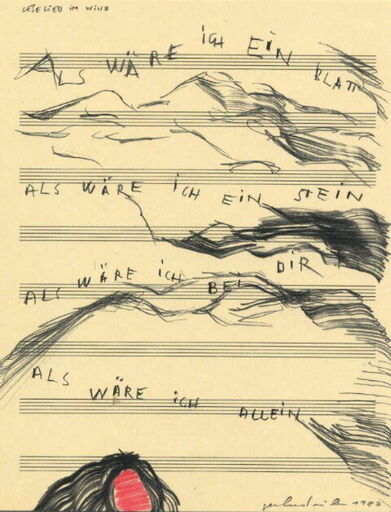 LESELIED IM WIND
ALS WÄRE iCH EiN BLATT
ALS WÄRE iCH EiN STEiN
ALS WÄRE iCH BEi DiR
ALS WÄRE iCH ALLEiN